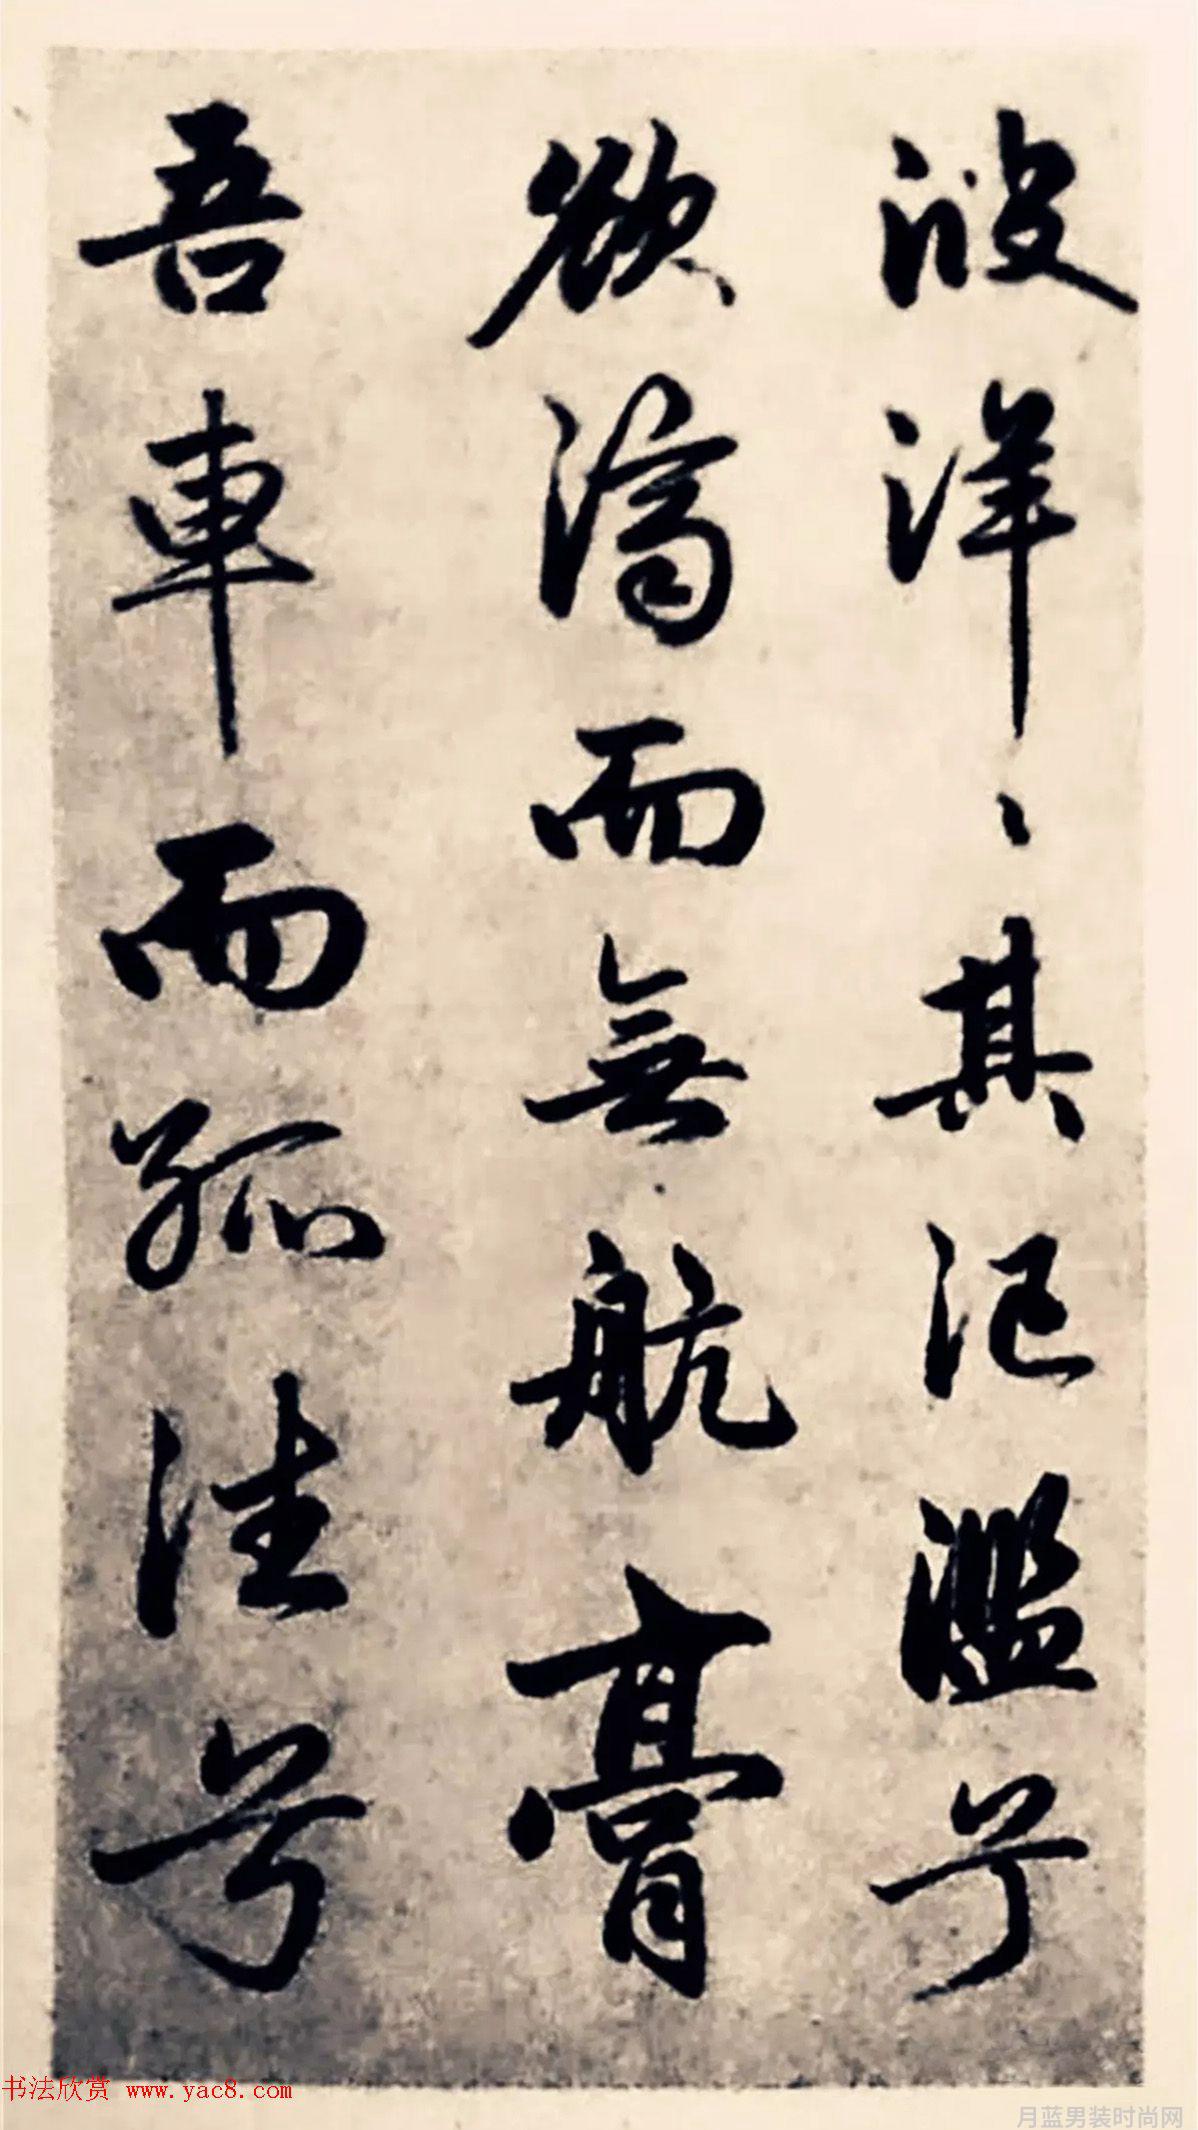 波洋〻其氾濫兮
欲濟而無航膏
吾車而孤往兮
书法欣赏 www.yac8.com
月蓝男装时尚网